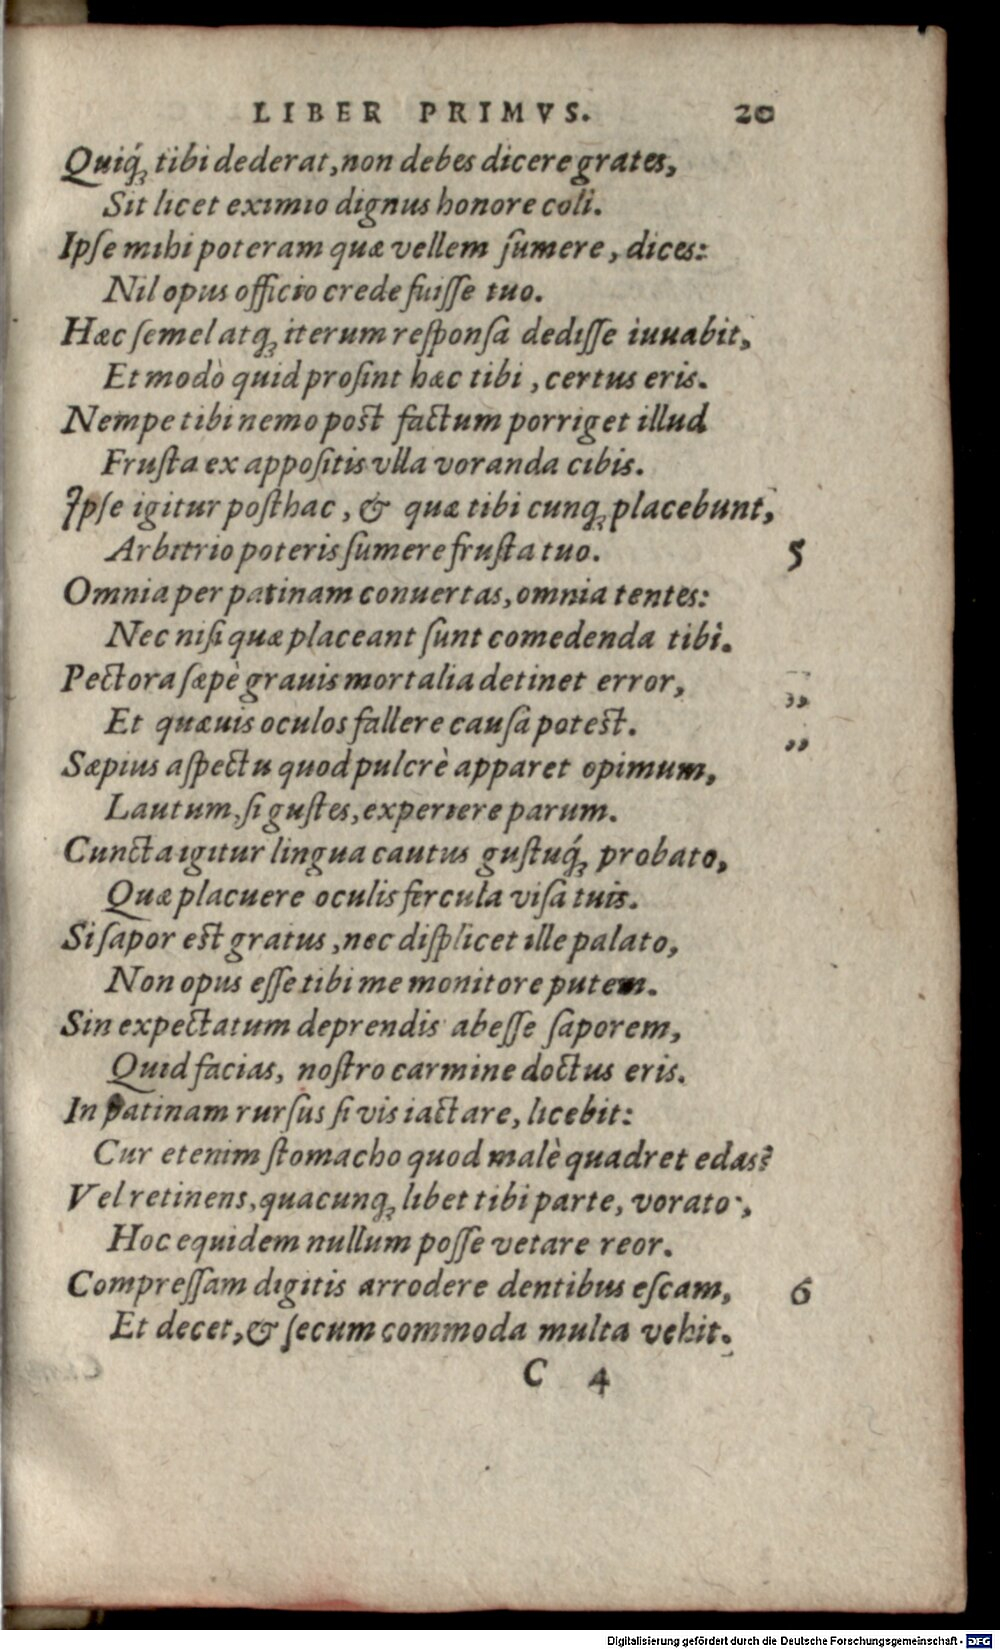 LIBER PRIMVS. 20
Quiq́; tibi dederat, non debes dicere grates,
Sit licet eximio dignus honore coli.
Ipse mihi poteram quæ vellem sumere, dices:
Nil opus officio crede fuisse tuo.
Hæc semel atq; iterum responsa dedisse iuuabit,
Et modò quid prosint hæc tibi, certus eris.
Nempe tibi nemo post factum porriget illud
Frusta ex appositis vlla voranda cibis.
Ipse igitur posthac, & quæ tibi cunq; placebunt,
Arbitrio poteris sumere frusta tuo. 5
Omnia per patinam conuertas, omnia tentes:
Nec nisi quæ placeant sunt comedenda tibi.
Pectora sæpè grauis mortalia detinet error, ,,
Et quæuis oculos fallere causa potest. ,,
Sæpius aspectu quod pulcrè apparet opimum,
Lautum, si gustes, experiere parum.
Cuncta igitur lingua cautus gustuq́; probato,
Quæ placuere oculis fercula visa tuis.
Si sapor est gratus, nec displicet ille palato,
Non opus esse tibi me monitore putem.
Sin expectatum deprendis abesse saporem,
Quid facias, nostro carmine doctus eris.
In patinam rursus si vis iactare, licebit:
Cur etenim stomacho quod malè quadret edas?
Vel retinens, quacunq; libet tibi parte, vorato,
Hoc equidem nullum posse vetare reor.
Compressam digitis arrodere dentibus escam, 6
Et decet, & secum commoda multa vehit.
C 4
Digitalisierung gefördert durch die Deutsche Forschungsgemeinschaft - DFG